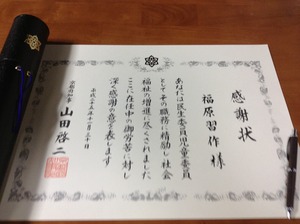 感謝状
福原習作様
あなたは民生委員児童委員
としてその職務に精励し社会
福祉の増進に尽くされました
ここに在任中の御労苦に対し
深く感謝の意を表します
平成二十五年十一月三十日
京都府知事 山田啓二